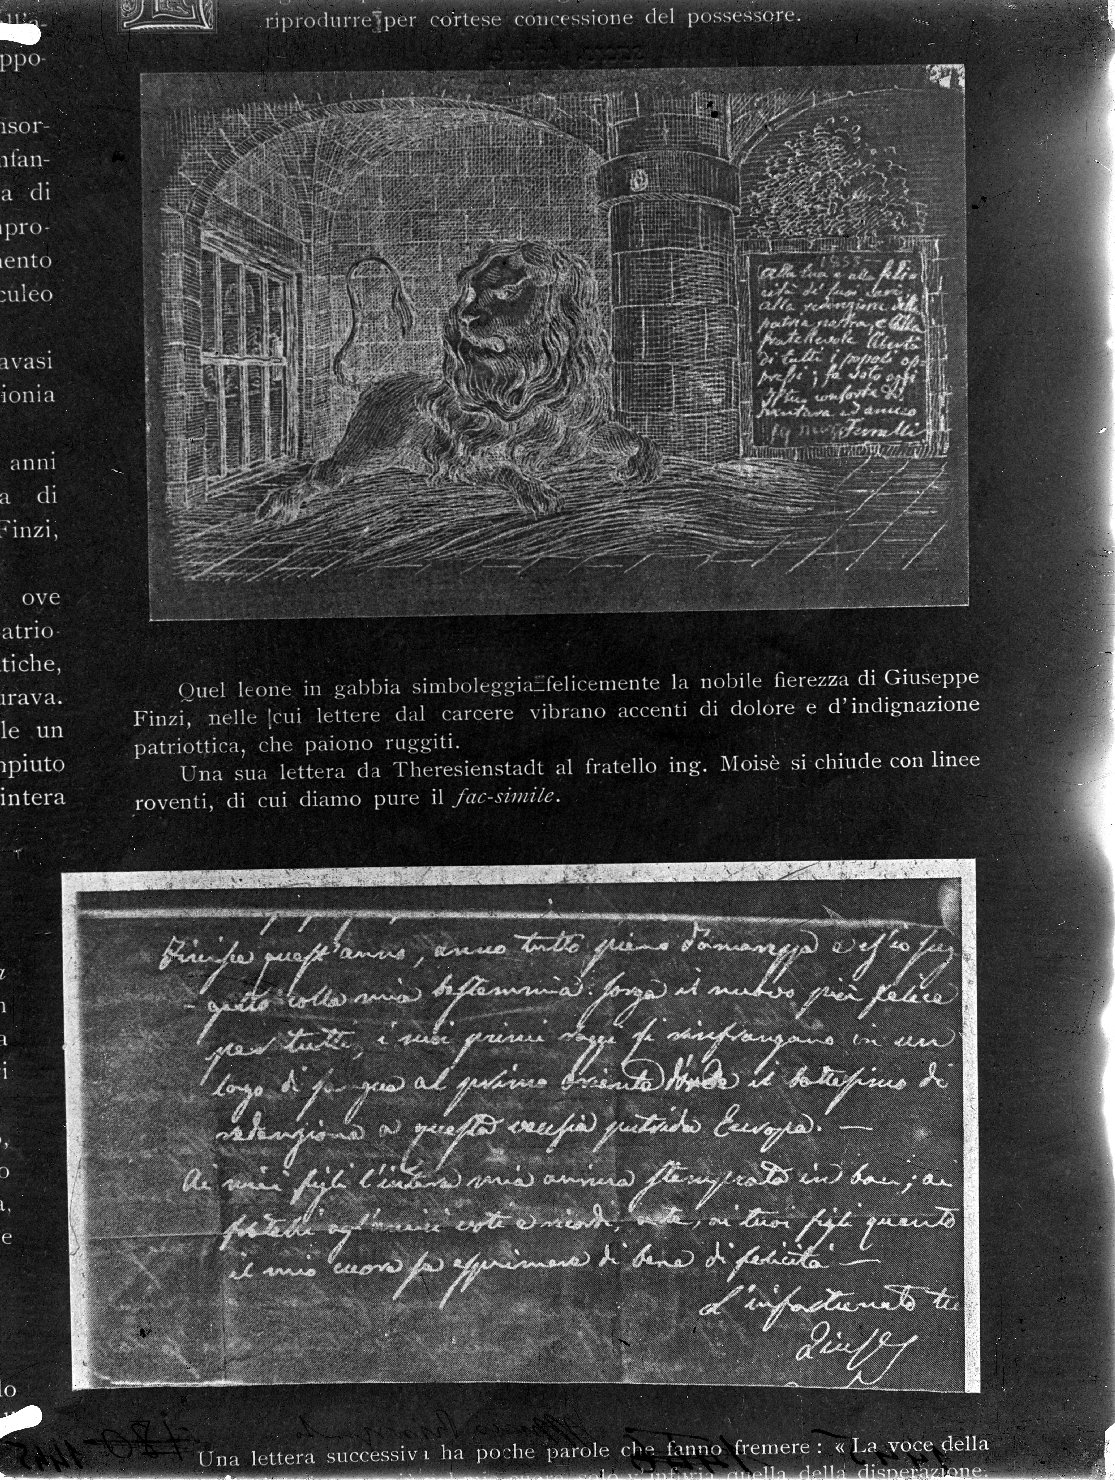 riprodurre per cortese concessione del possessore.
ppo-
nsor-
nfan-
a di
pro-
mento
culeo
avasi
ionia
anni
a di
Finzi,
ove
atrio-
tiche,
urava.
le un
mpiuto
intera
1853
Alla sua e alla feli-
cità de' suoi cari
alla redenzione della
patria nostra, e alla
fratellevole libertà
di tutti i popoli op
pressi; fa voto oggi
conforto di
amico
Ferretti
Quel leone in gabbia simboleggia felicemente la nobile fierezza di Giuseppe
Finzi, nelle cui lettere dal carcere vibrano accenti di dolore e d'indignazione
patriottica, che paiono ruggiti.
Una sua lettera da Theresienstadt al fratello ing. Moisè si chiude con linee
roventi, di cui diamo pure il fac-simile.
Finisce quest'anno, anno tutto pieno d'amarezza e ch'io sug
- gello colla mia bestemmia. Sorga il nuovo più felice
per tutti, i suoi primi raggi si rinfrangano in un
lago di sangue al primo oriente d'onde il battesimo di
redenzione a questa vecchia putrida Europa. —
Ai miei figli l'intera mia anima stemprata in baci; ai
fratelli agl'amici voti e ricordi, a te, ai tuoi figli quanto
il mio cuore sa esprimere di bene di felicità —
L'infortunato tu
Una lettera successiva ha poche parole che fanno fremere: « La voce della
quella della disperazione